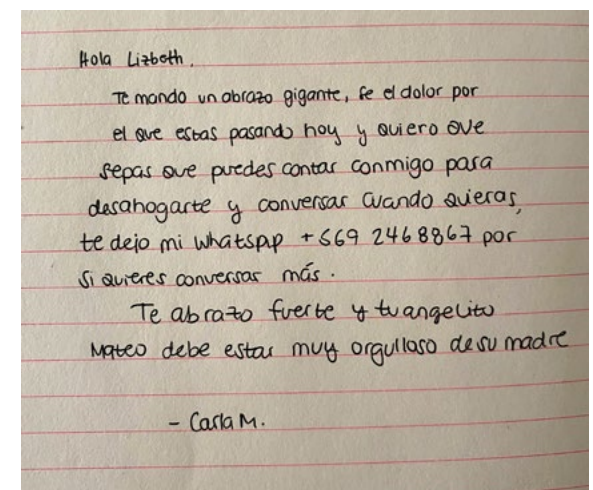 Hola Lizbeth,
Te mando un abrazo gigante, se el dolor por
el que estas pasando hoy y quiero que
sepas que puedes contar conmigo para
desahogarte y conversar cuando quieras,
te dejo mi whatspap +569 2468867 por
si quieres conversar más.
Te abrazo fuerte y tu angelito
Mateo debe estar muy orgulloso de su madre
- Carla M.